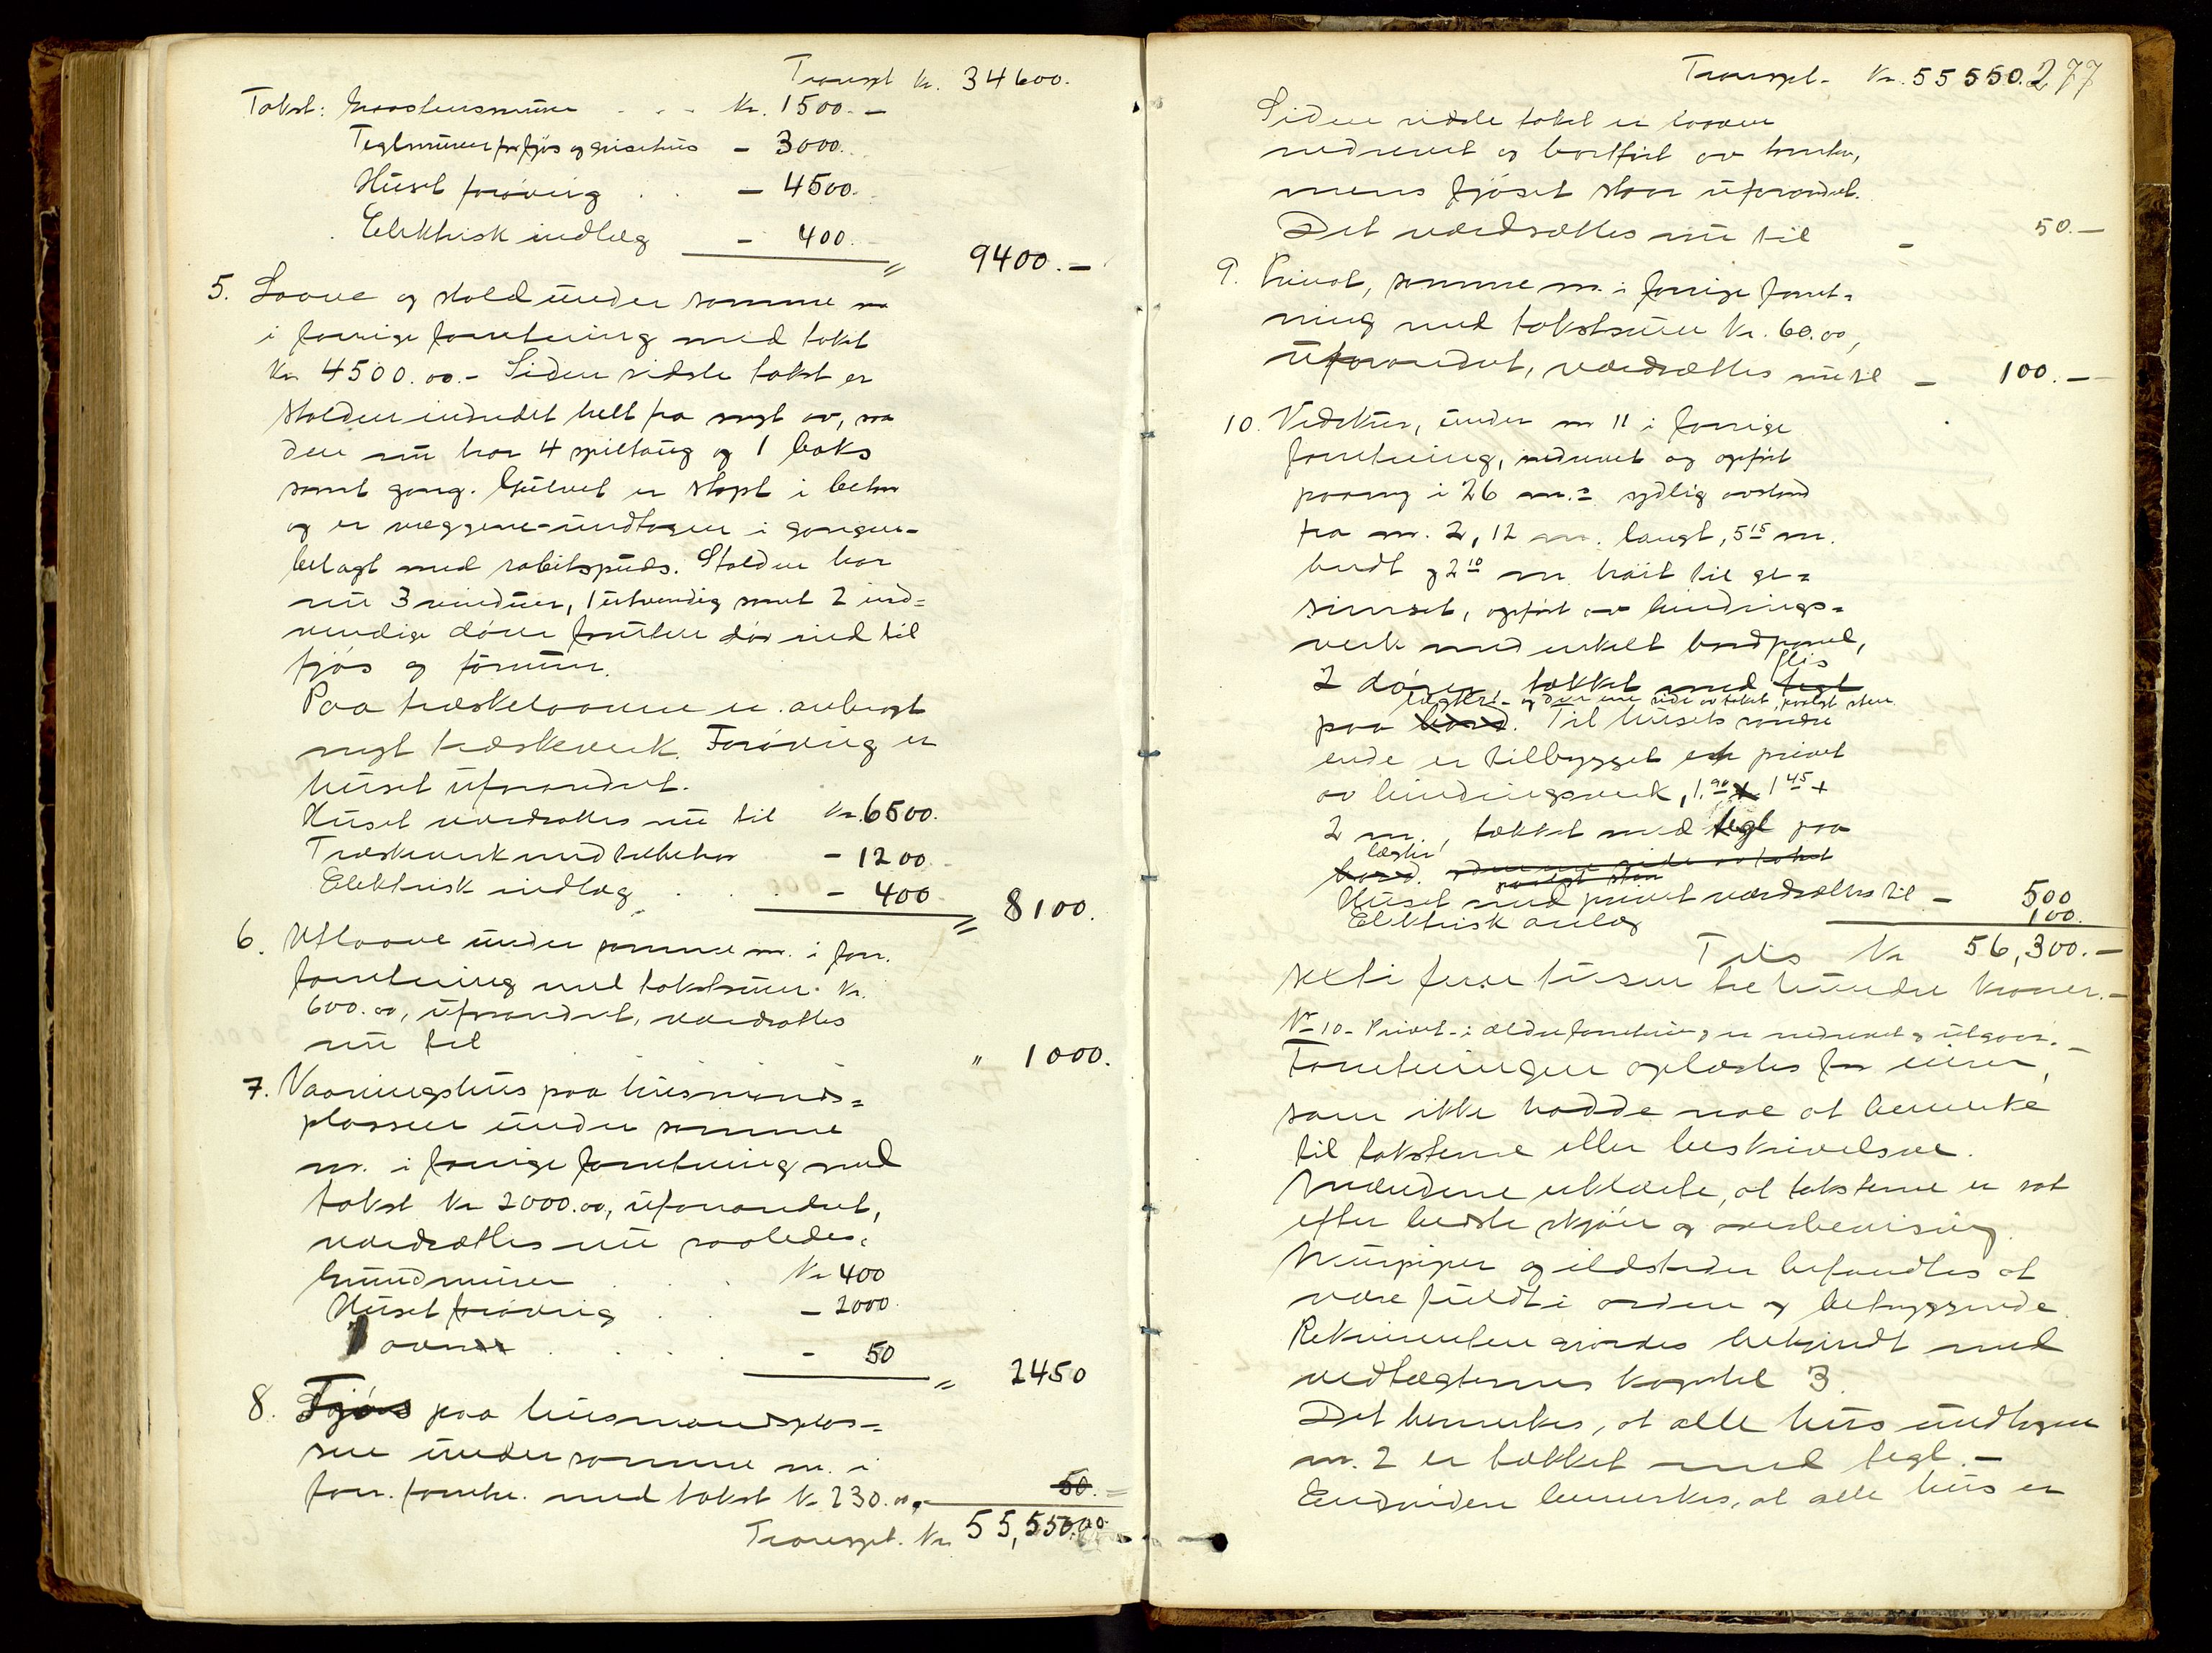 Transpt Kr. 34600.
Takst: Graastensmure . . - Kr. 1500. -
Teglmurer for fjøs og grisehus - 3000.
Huset forøvrig . . - 4500.
Elektrisk indlæg - 400.
" 9400. -
5. Laave og stald under samme nr
i forrige forretning med takst
Kr 4500.00. - Siden sidste takst er
stalden indredet helt fra nyt av, saa
den nu har 4 spiltaug og 1 boks
samt gang. Gulvet er støpt i beton
og er væggene - undtagen i gangen -
belagt med rabitspuds. Stalden har
nu 3 vinduer, 1 utvendig samt 2 ind-
vendige døre foruten dør ind til
fjøs og forrum.
Paa træskelaaven er anbragt
nyt træskeverk. Forøvrig er
huset uforandret.
Huset værdsættes nu til Kr. 6500.
Træskeverk med tilbehør - 1200.
Elektrisk indlæg . . - 400
" 8100.
6. Utlaave under samme nr. i forr.
forretning med takstsum Kr.
600.00, uforandret, værdsættes
nu til " 1000.
7. Vaaningshus paa husmands-
plassen under samme
nr. i forrige forretning med
takst Kr 2000.00, uforandret,
værdsættes nu saaledes:
Grundmurer . . Kr 400
Huset forøvrig . . - 2000.
1 ovner . . . . - 50
" 2450
8. Fjøs paa husmandsplas-
sen under samme nr. i
forr. forretn. med takst Kr 230.00, 50. -
Transpt. Kr. 55,550.00
Transpt. - Kr. 55550. 277
Siden sidste takst er laaven
nedrevet og bortført av bruket,
mens fjøset staar uforandret.
Det værdsættes nu til - 50. -
9. Privat, samme nr. i forrige forret-
ning med takstsum Kr. 60.00,
uforandret, værdsættes nu til - 100. -
10. Vedskur, under nr 11 i forrige
forretning, nedrevet og opført
paany i 26 m.s sydlig avstand
fra nr. 2, 12 m. langt, 5 15 m.
bredt og 2 10 m høit til ge-
simset, opført av bindings-
verk med enkelt bordpanel,
flis
2 dører, tækket med tegl
lægter - og den ene side av taket, paalagt sten
paa bord. Til husets søndre
ende er tilbygget et privet
av bindingsverk, 1. 90 x 1 45 +
2 m., tækket med tegl paa
lægter
bord. og den ene side av taket
paalagt sten
Huset med privet værdsættes til - 500
Elektrisk anlæg 100.
Tils Kr 56,300. -
seksti femn tusen tre hundre kroner. -
Nr 10 - Privet - i ældre forretning er nedrevet og utgaar. -
Forretningen oplæstes for eieren,
som ikke hadde noe at bemerke
til taksterne eller beskrivelsen.
Mændene erklærte, at taksterne er sat
efter bedste skjøn og overbevisning.
Murpiper og ildsteder befandtes at
være fuldt i orden og betryggende.
Rekvirenten gjordes bekjendt med
vedtægternes kapitel 3.
Det bemerkes, at alle hus undtagen
nr. 2 er tækket med tegl. -
Endvidere bemerkes, at alle hus er